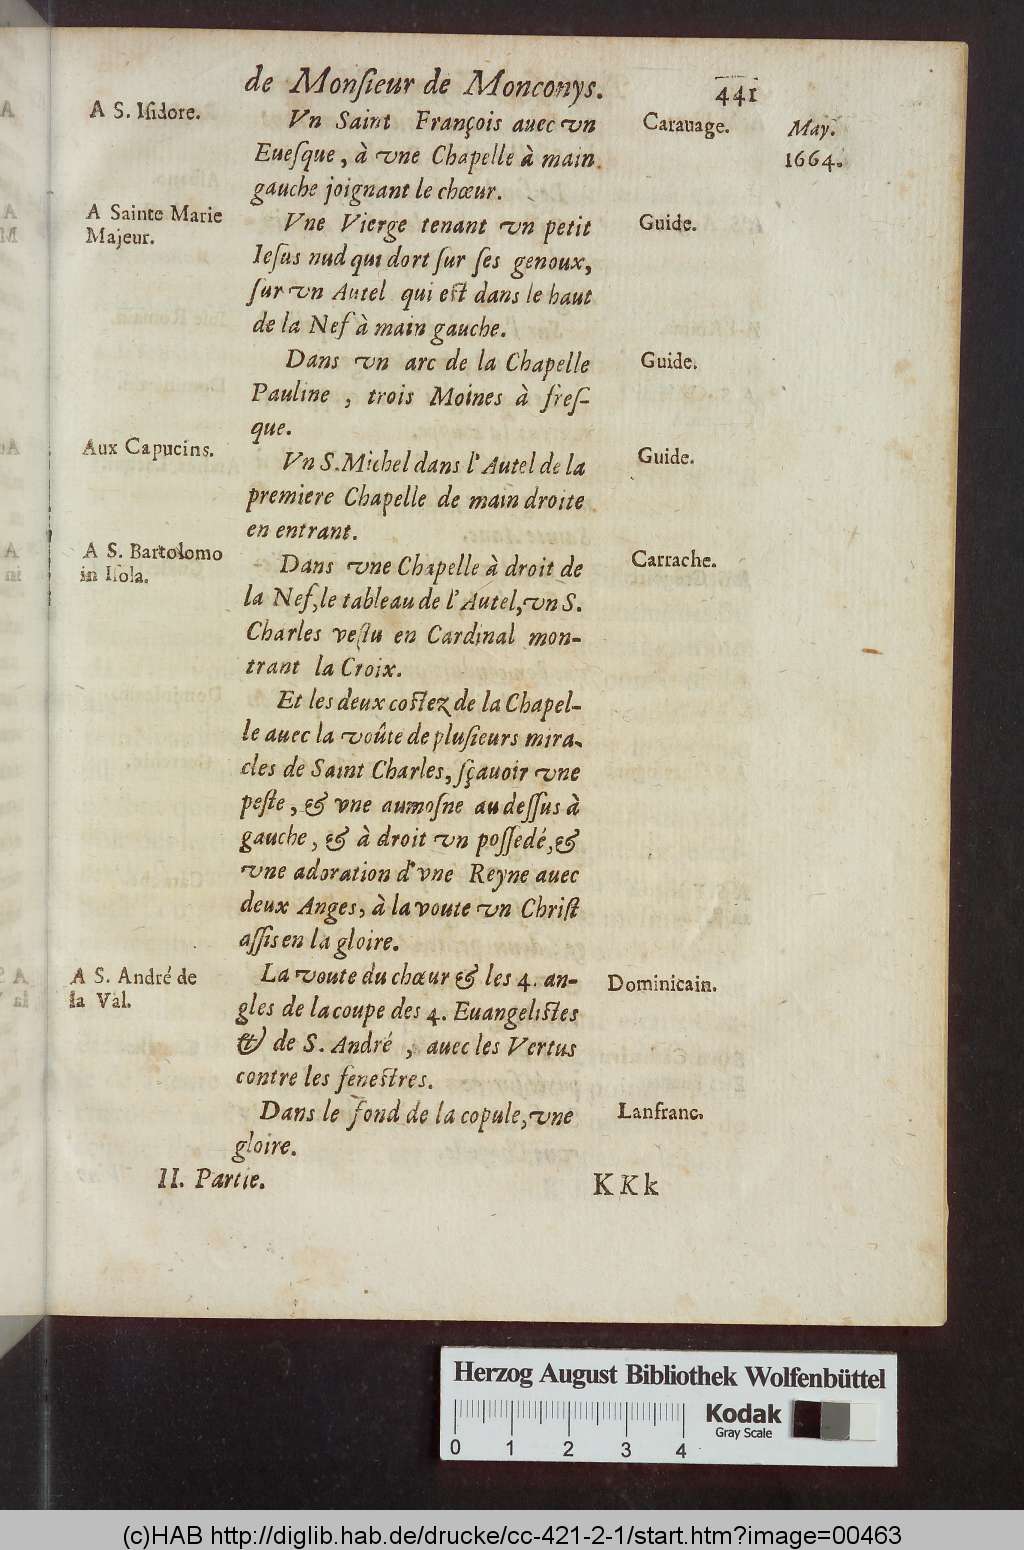 de Monſieur de Monconys. 441
A S. Iſidore.
Vn Saint François auec vn
Eueſque, à vne Chapelle à main
gauche joignant le chœur.
Carauage.
May.
1664.
A Sainte Marie
Majeur.
Vne Vierge tenant vn petit
Ieſus nud qui dort ſur ſes genoux,
ſur vn Autel qui eſt dans le haut
de la Nef à main gauche.
Guide.
Dans vn arc de la Chapelle
Pauline , trois Moines à freſ-
que.
Guide.
Aux Capucins.
Vn S. Michel dans l'Autel de la
premiere Chapelle de main droite
en entrant.
Guide.
A S. Bartolomo
in Iſola.
Dans vne Chapelle à droit de
la Nef, le tableau de l'Autel, vn S.
Charles veſtu en Cardinal mon-
trant la Croix.
Carrache.
Et les deux coſtez de la Chapel-
le auec la voûte de pluſieurs mira-
cles de Saint Charles, ſçauoir vne
peſte, & vne aumoſne au deſſus à
gauche, & à droit vn poſſedé, &
vne adoration d'vne Reyne auec
deux Anges, à la voute vn Chriſt
aſſis en la gloire.
A S. André de
la Val.
La voute du chœur & les 4. an-
gles de la coupe des 4. Euangeliſtes
& de S. André , auec les Vertus
contre les feneſtres.
Dominicain.
Dans le fond de la copule, vne
gloire.
Lanfranc.
II. Partie. KKk
Herzog August Bibliothek Wolfenbüttel
0 1 2 3 4
Kodak
Gray Scale
(c)HAB http://diglib.hab.de/drucke/cc-421-2-1/start.htm?image=00463